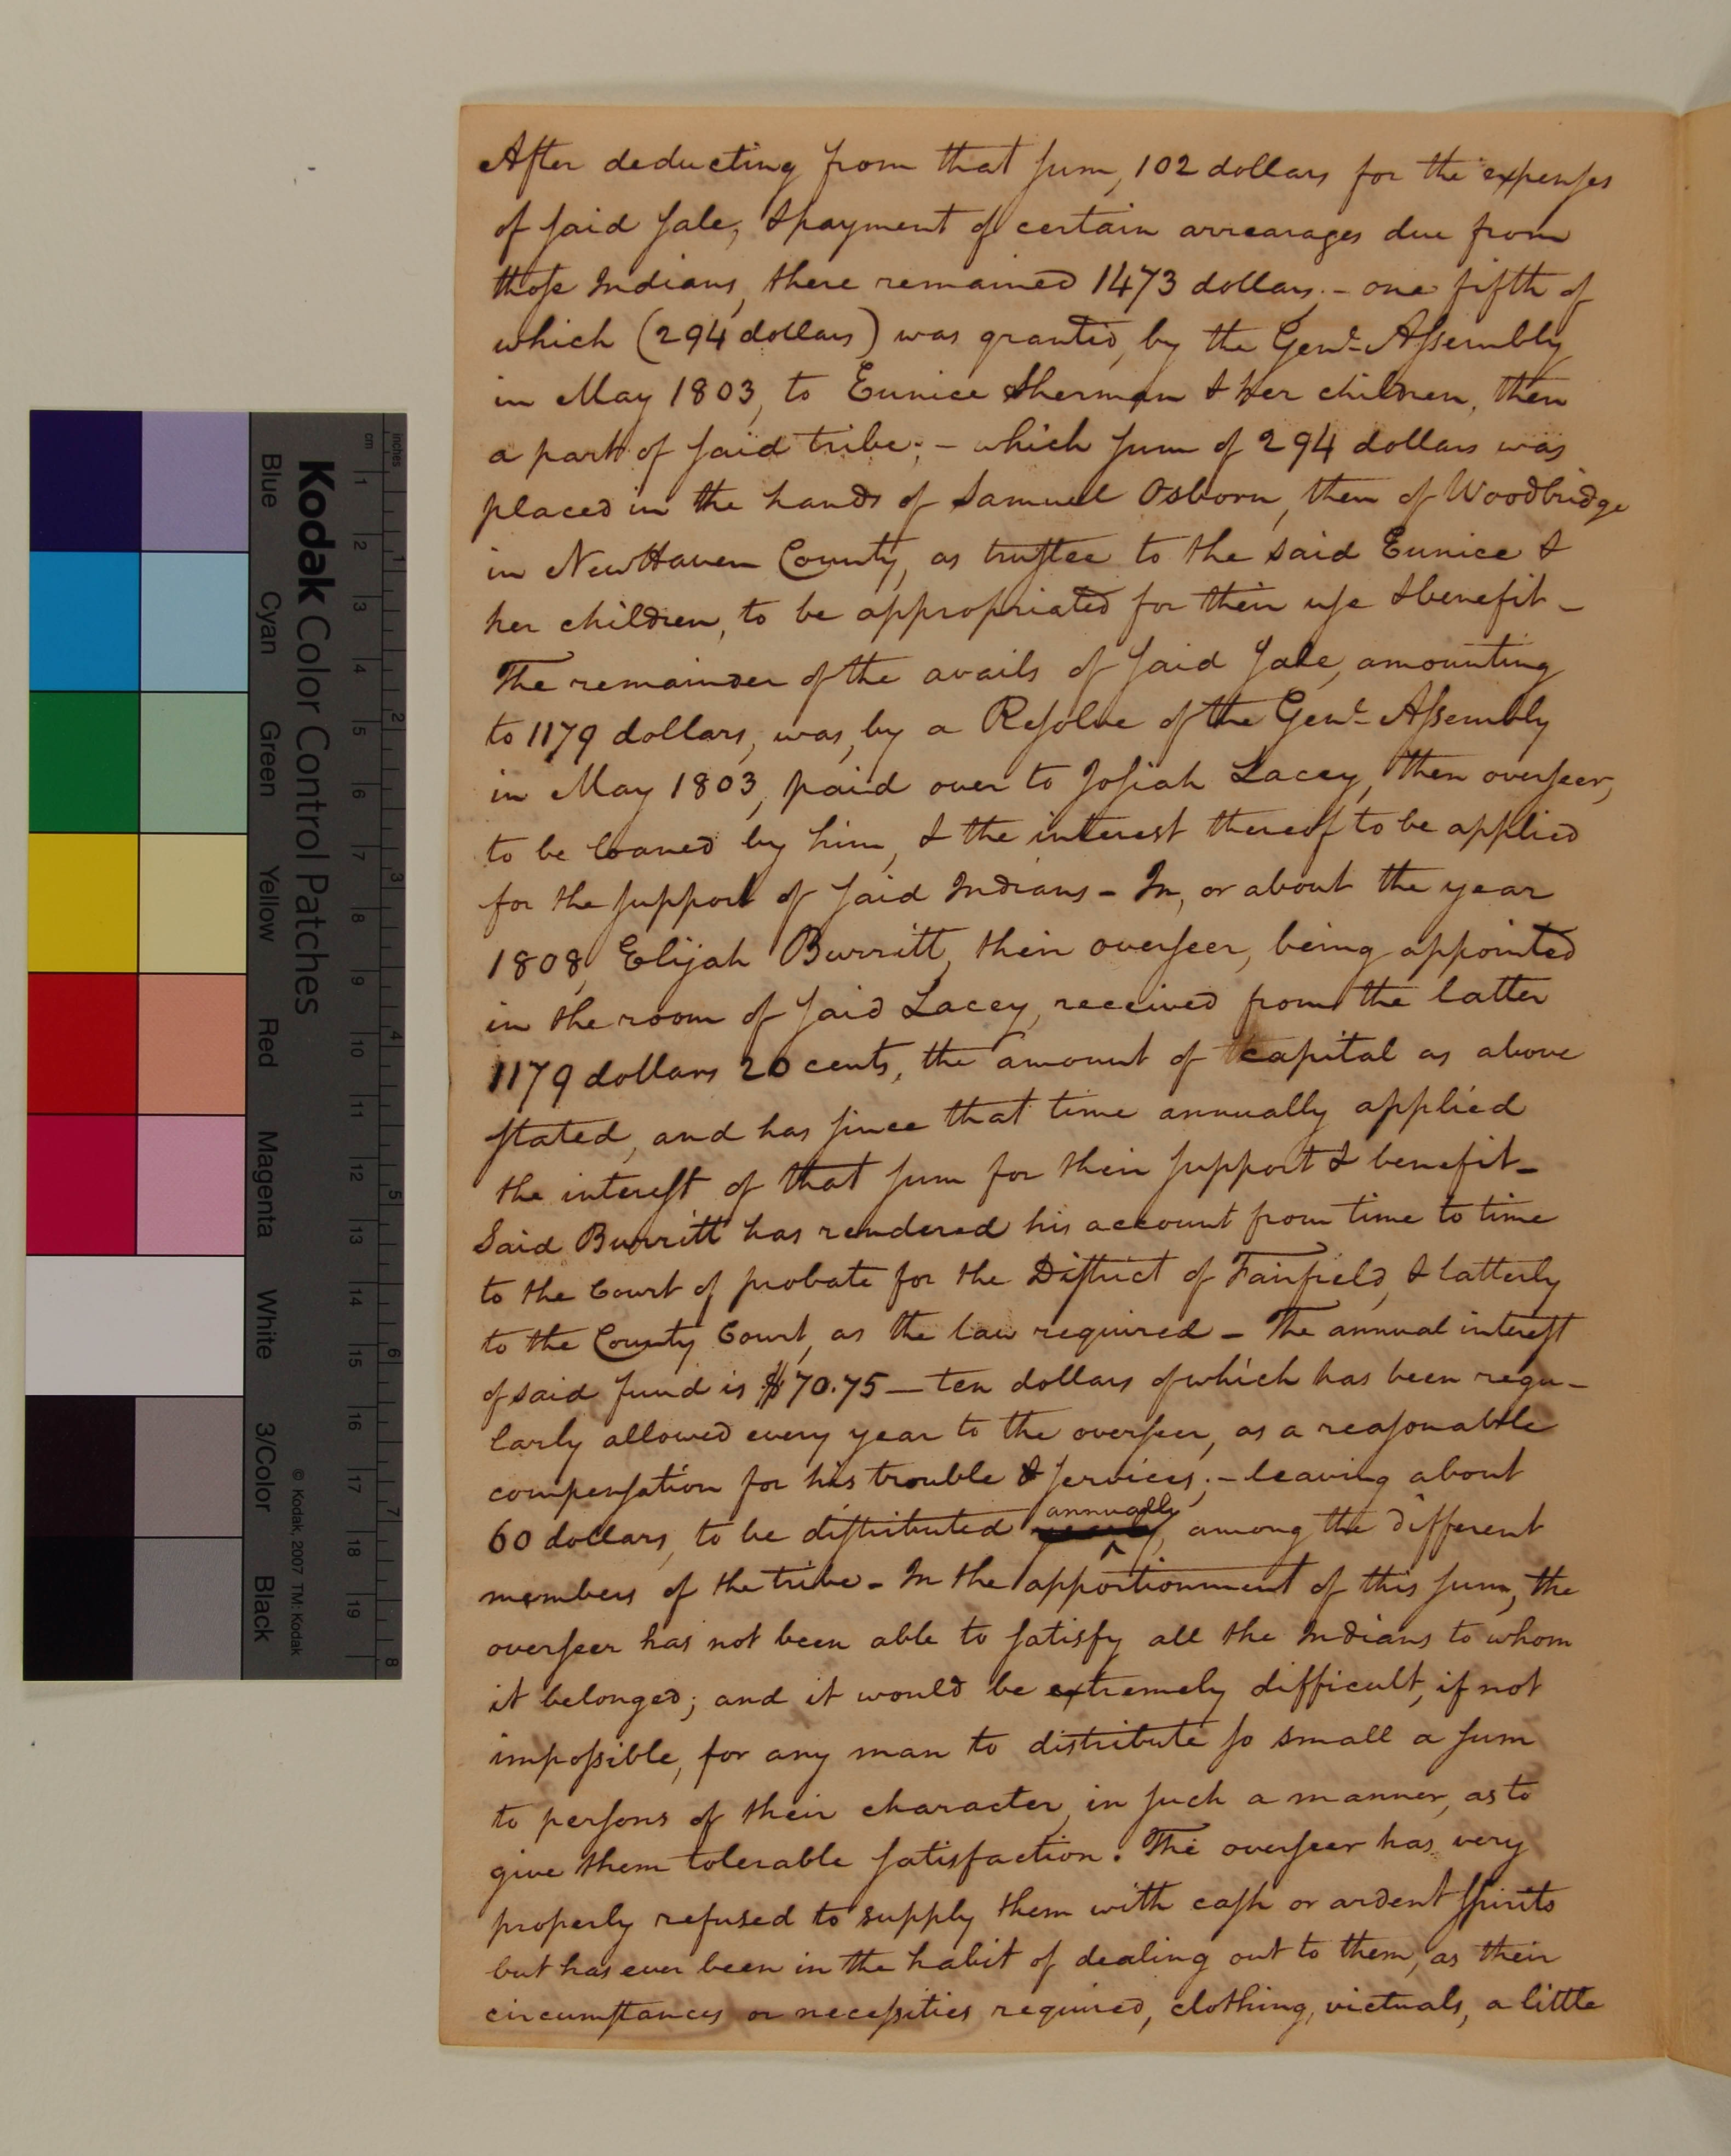 After deducting from that sum, 102 dollars for the expenses
of said sale, & payment of certain arrearages due from
those Indians, there remained 1473 dollars; - one fifth of
which (294 dollars) was granted, by the Genl. Assembly
in May 1803, to Eunice Sherman & her children, then
a part of said tribe; - which sum of 294 dollars was
placed in the hands of Samuel Osborn, then of Woodbridge
in New Haven County, as trustee to the said Eunice &
her children, to be appropriated for their use & benefit -
The remainder of the avails of said sale, amounting
to 1179 dollars, was, by a Resolve of the Genl. Assembly
in May 1803, paid over to Josiah Lacey, then overseer,
to be loaned by him, & the interest thereof to be applied
for the support of said Indians - In, or about the year
1808, Elijah Burritt, their overseer, being appointed
in the room of said Lacey, received from the latter
1179 dollars 20 cents, the amount of capital as above
stated, and has since that time annually applied
the interest of that sum for their support & benefit -
Said Burritt has rendered his account from time to time
to the Court of probate for the District of Fairfield, & latterly
to the County Court, as the law required - The annual interest
of said fund is $70.75 — ten dollars of which has been regu-
larly allowed every year to the overseer, as a reasonable
compensation for his trouble & services; - leaving about
annually
60 dollars, to be distributed, among the different
members of the tribe - In the apportionment of this sum, the
overseer has not been able to satisfy all the Indians to whom
it belonged; and it would be extremely difficult, if not
impossible, for any man to distribute so small a sum
to persons of their character, in such a manner, as to
give them tolerable satisfaction. The overseer has very
properly refused to supply them with cash or ardent spirits
but has ever been in the habit of dealing out to them, as their
circumstances or necessities required, clothing, victuals, a little
Kodak Color Control Patches
© Kodak, 2007 TM: Kodak
Blue Cyan Green Yellow Red Magenta White 3/Color Black
cm 1 2 3 4 5 6 7 8 9 10 11 12 13 14 15 16 17 18 19
inches 1 2 3 4 5 6 7 8